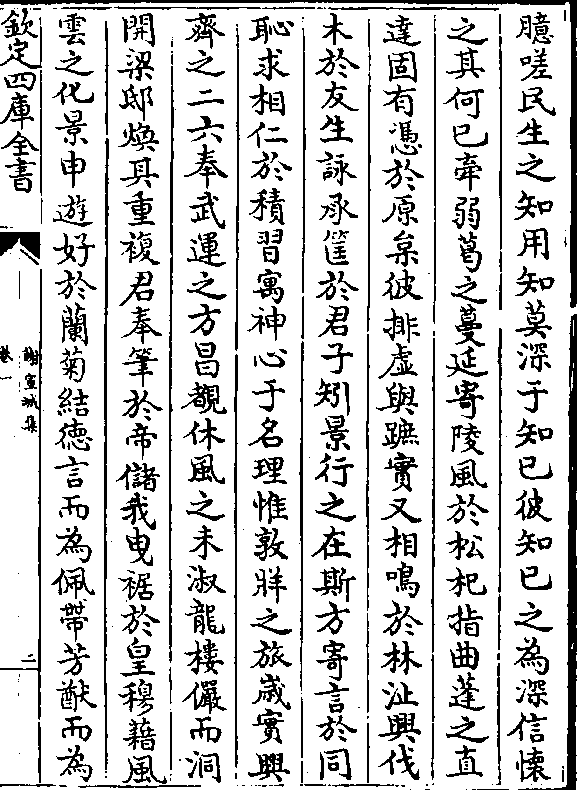 臆嗟民生之知用知莫深于知已彼知已之為深信懷
之其何已牽弱葛之蔓延寄陵風於松杞指曲蓬之直
達固有憑於原枲彼排虛與蹠實又相鳴於林沚興伐
木於友生詠承筐於君子矧景行之在斯方寄言於同
恥求相仁於積習寓神心于名理惟敦牂之旅歲實興
齊之二六奉武運之方昌覩休風之未淑龍樓儼而洞
開梁邸煥其重複君奉筆於帝儲我曳裾於皇穆藉風
雲之化景申遊好於蘭菊結德言而為佩帶芳猷而為
欽定四庫全書
謝宣城集
卷一
二